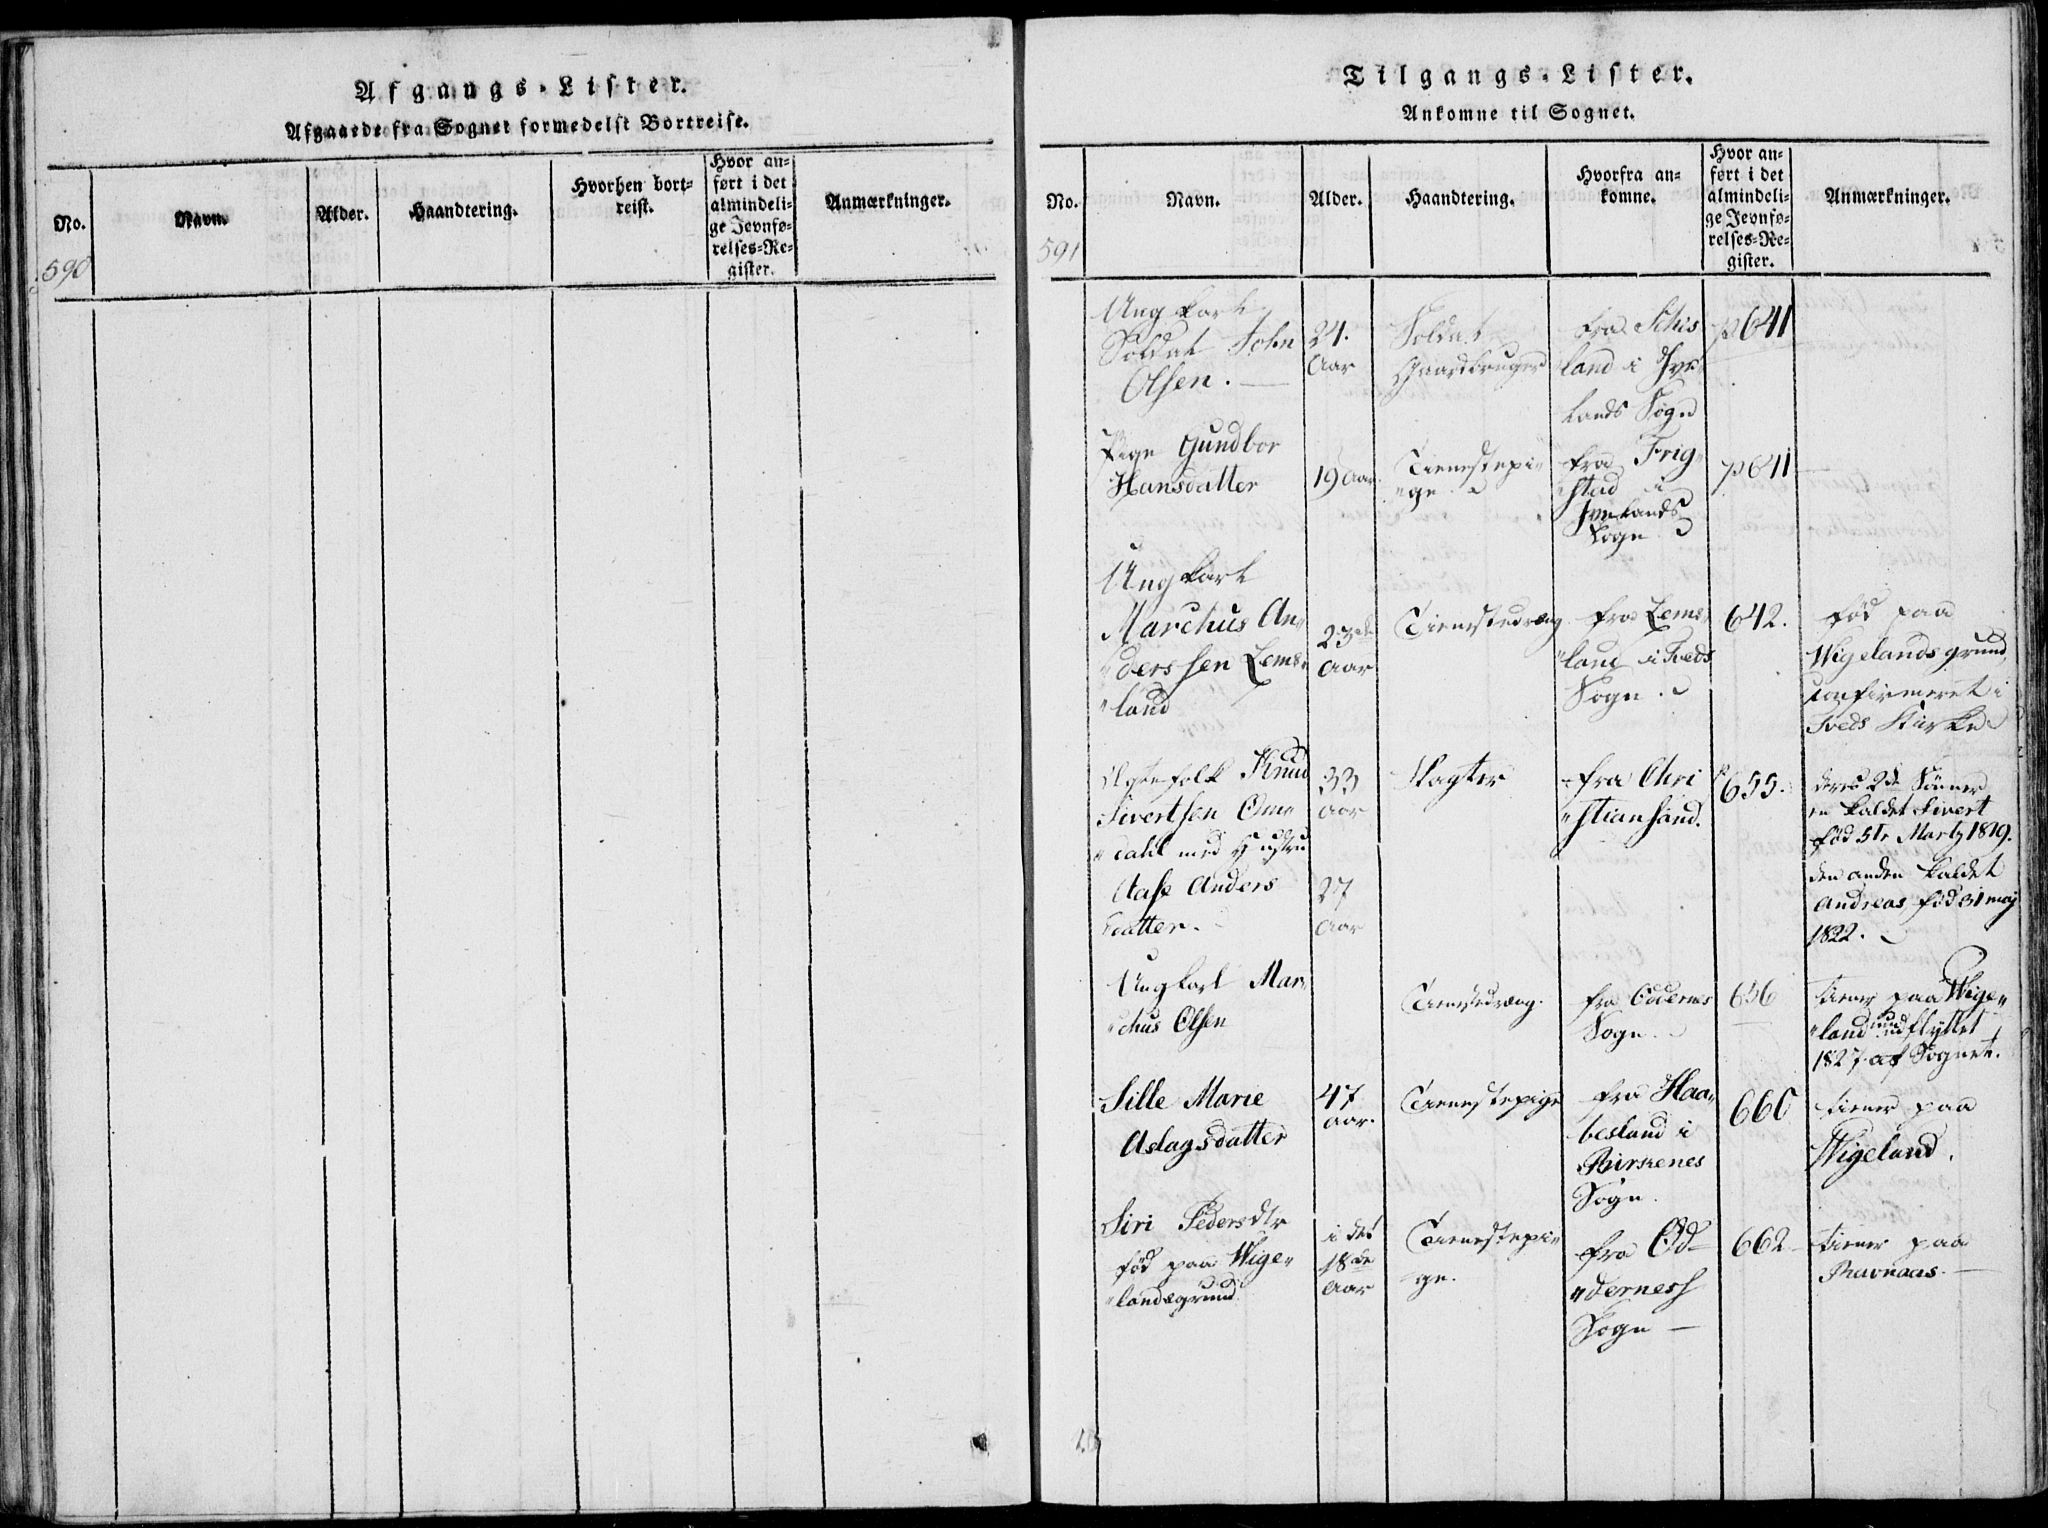 Afgangs-Lister.
Afgaaede fra Sognet formedelst Bortreise.
No.
Navn.
Alder.
Haandtering.
Hvorhen bort-
reist.
Hvor an-
ført i det
almindeli-
ge Jevnfø-
relses-Re-
gister.
Anmærkninger.
590
Tilgangs-Lister.
Ankomne til Sognet.
No.
Navn.
Alder.
Haandtering.
Hvorfra an-
komne.
Hvor an-
ført i det
almindeli-
ge Jevnfø-
relses-Re-
gister.
Anmærkninger.
591
Ung Karl
Soldat John
Olsen.
24.
Aar
Soldat
Gaardbruger
fra
land i
lands Sogn
p 641
Pige Gundbor
Hansdatter
19 Aar.
Tienestepi„
„ge
fra Frig„
stad i
lands
Sogn
p 641
Ung Karl
Marchus An„
„derssen Lems„
„land
23de
Aar
Tienestedreng
fra Lems„
„land i Tveds
Sogn.
642.
fød paa
Wigelands grund,
confirmeret i
Tveds Kirke
Ægtefolk Knud
Sivertsen Om„
„dahl med Hustru
Aase Anders
datter.
33
Aar
27
Aar
Slagter
fra Chri
„stiansand.
p 655.
deres 2de Sønner
en kaldet Sivert
fød 5te Martz 1819.
den anden kaldet
Andreas, fød 31 maj
1822.
Ungkarl Mar„
„chus Olsen
Tienestedreng.
fra Oddernes
Sogn.
656
tiener paa Wige„
„land nu udflyttet
1827 af Sognet.
Sille Marie
Aslagsdatter
47
aar.
Tienestepige
fra Haa„
besland i
Birkenes
Sogn.
660
tiener paa
Wigeland.
Siri Pedersdtr
fød paa Wige„
„landsgrund
i det
18de
Aar
Tienestepi„
ge.
fra Od„
„derness
Sogn
662
tiener paa
Ravnaas.